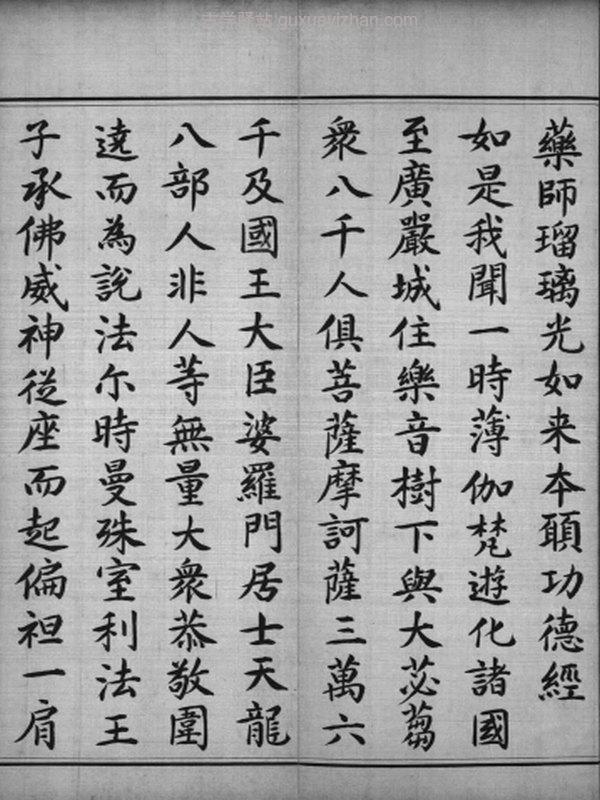 古学驿站 guxueyizhan.com
藥師瑠璃光如来本願功德經
如是我聞一時薄伽梵遊化諸國
至廣嚴城住樂音樹下與大苾蒭
衆八千人俱菩薩摩訶薩三萬六
千及國王大臣婆羅門居士天龍
八部人非人等無量大衆恭敬圍
遶而為說法尒時曼殊室利法王
子承佛威神從座而起偏袒一肩